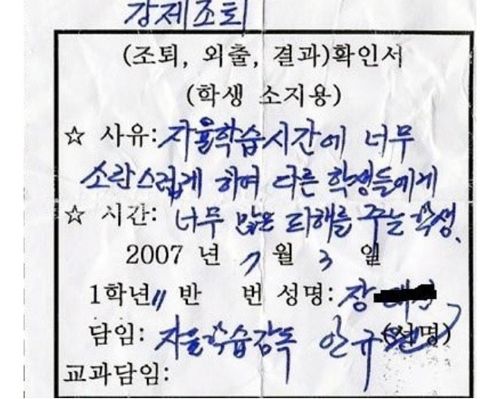 강제조퇴
(조퇴, 외출, 결과)확인서
(학생 소지용)
☆ 사유: 자율학습시간에 너무
소란스럽게 하며 다른 학생들에게
☆ 시간: 너무 많은 피해를 주는 학생.
2007 년 7 월 3 일
1학년 11 반 번 성명: 장
담임: 자율학습감독 안규 (서명)
교과담임: